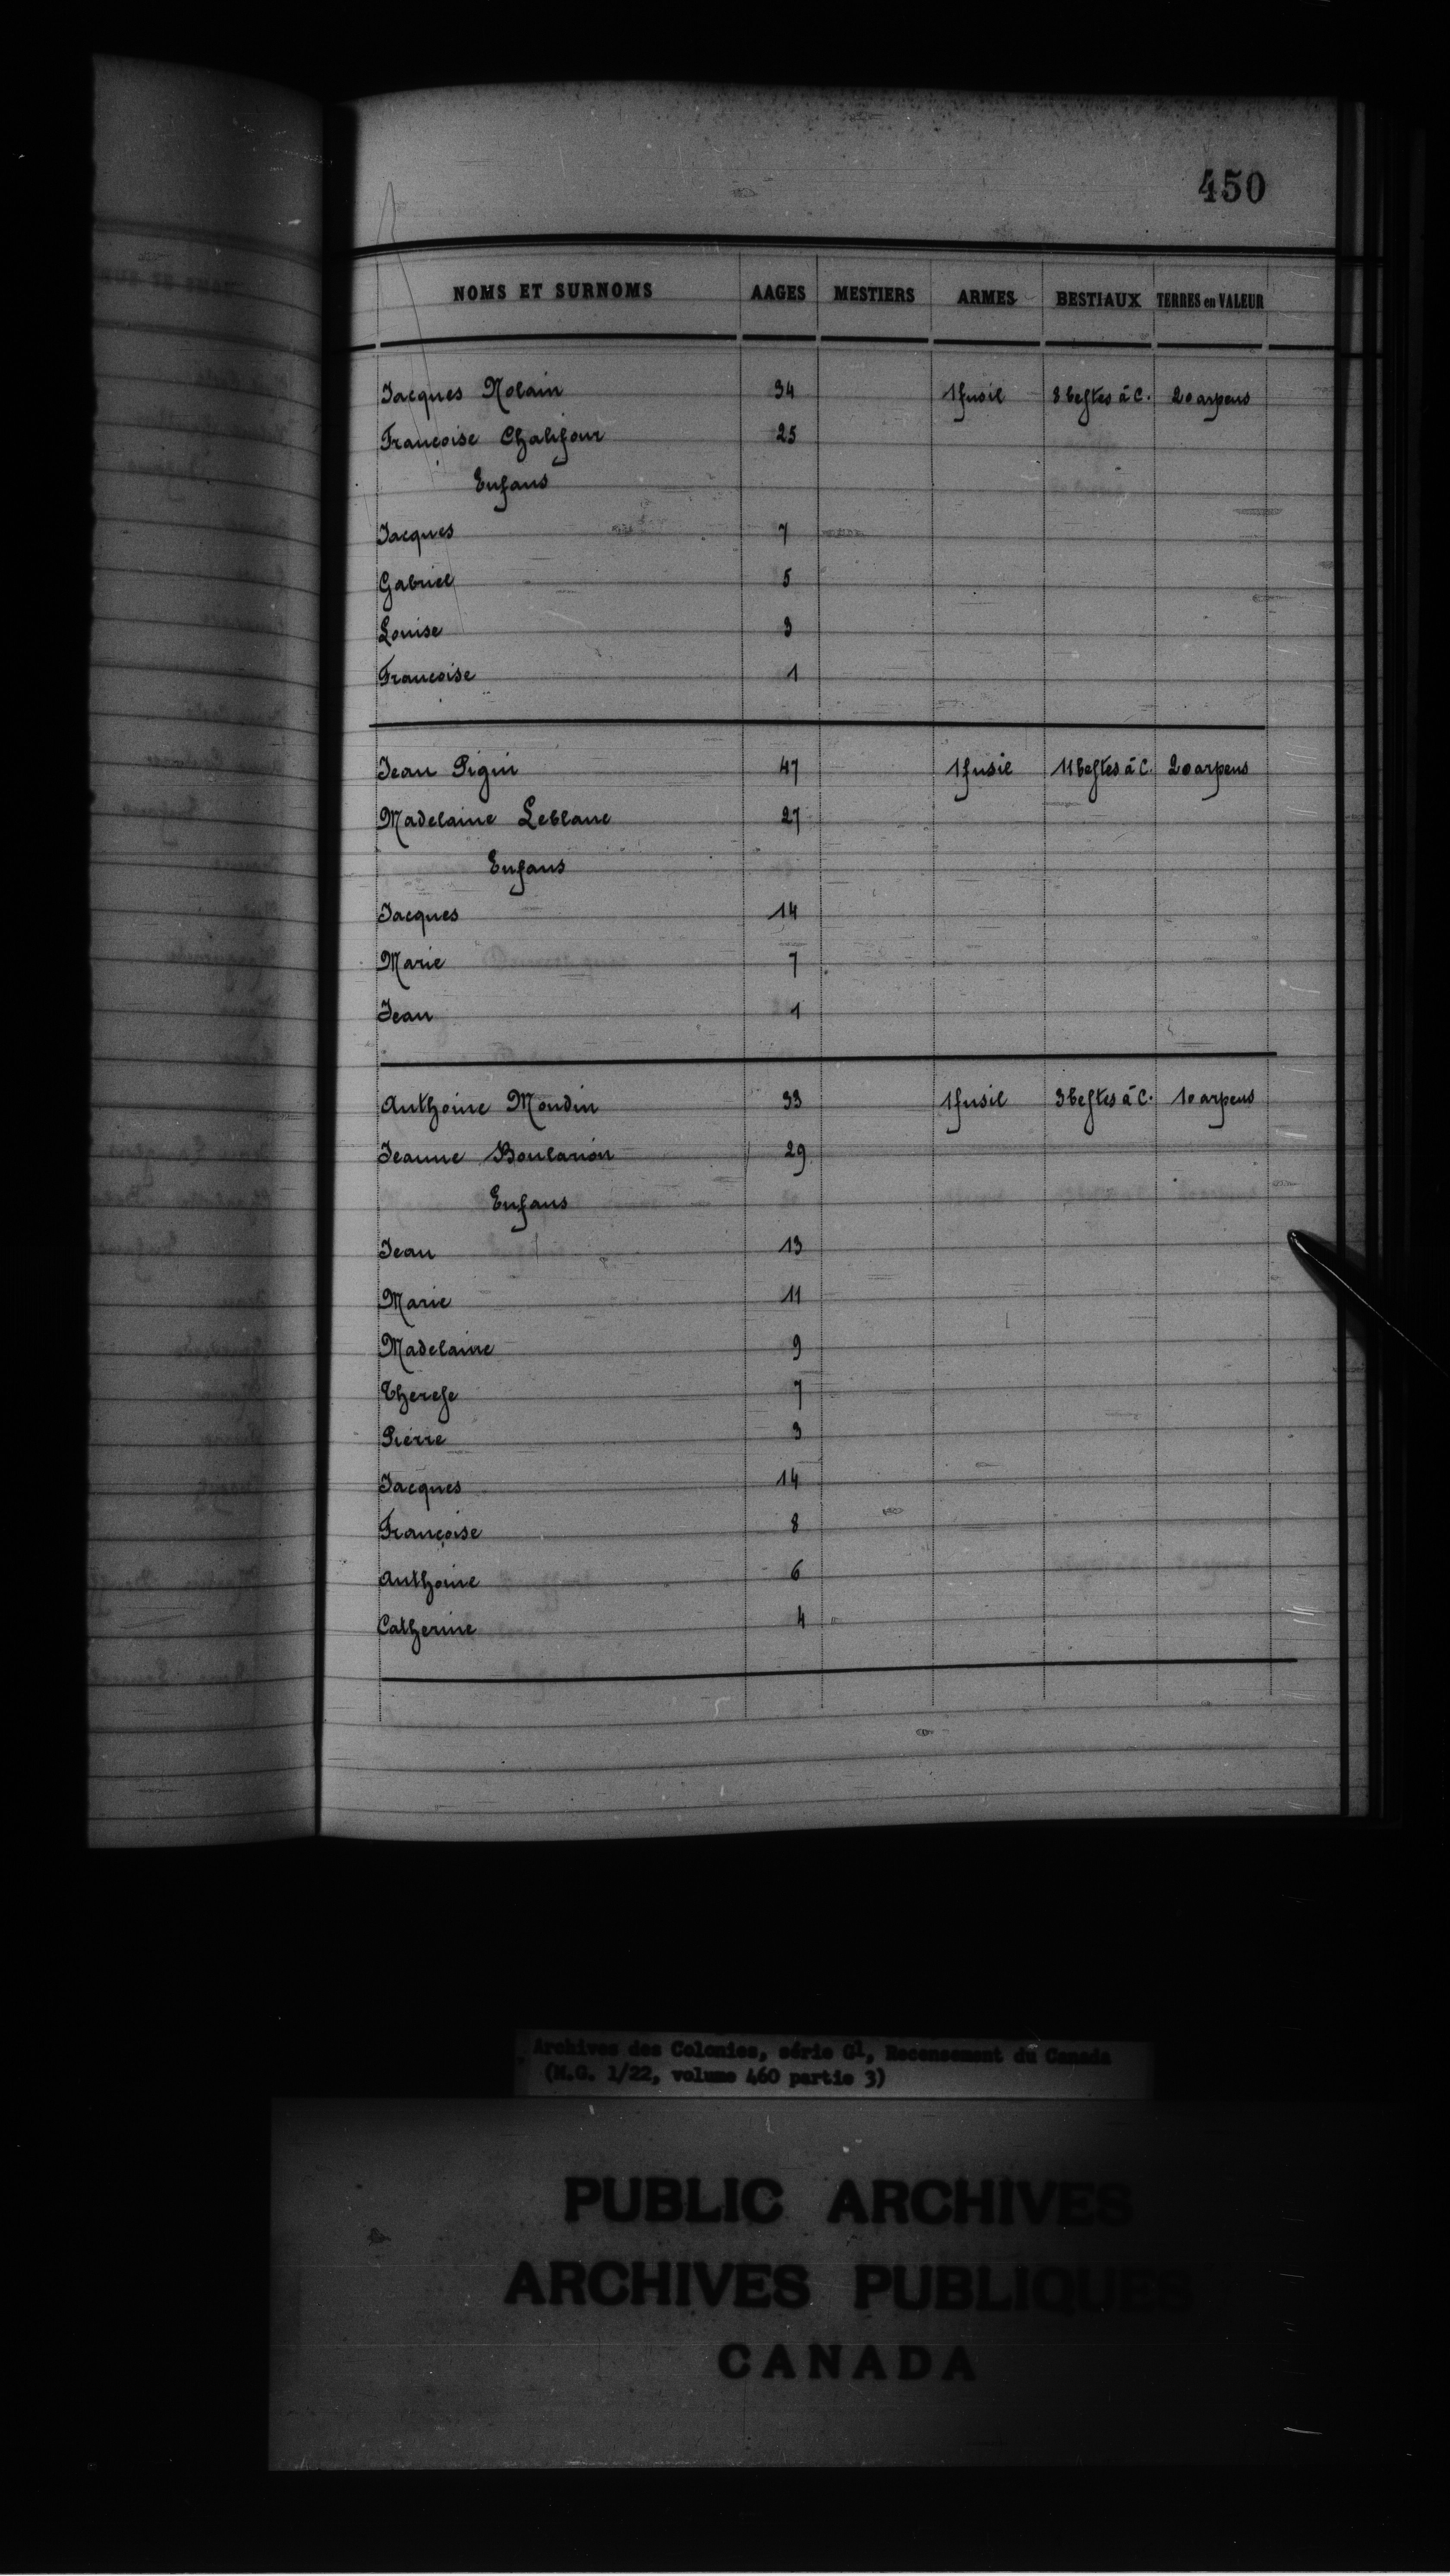 450
NOMS ET SURNOMS AAGES MESTIERS ARMES BESTIAUX TERRES en VALEUR
Jacques Nolain 34 1 fusil 8 bestes à C. 20 arpens
Francoise Chalifour 25
Enfans
Jacques 7
Gabriel 5
Louise 3
Francoise 1
Jean Pigin 47 1 fusil 11 bestes à C. 20 arpens
Madelaine Leblanc 27
Enfans
Jacques 14
Marie 7
Jean 1
Anthoine Moudin 33 1 fusil 3 bestes à C. 10 arpens
Jeanne Boularion 29
Enfans
Jean 13
Marie 11
Madelaine 9
Therese 7
Pierre 3
Jacques 14
Françoise 8
Anthoine 6
Catherine 4
Archives des Colonies, série G1, Recensement du Canada
(M.G. 1/22, volume 460 partie 3)
PUBLIC ARCHIVES
ARCHIVES PUBLIQUES
CANADA